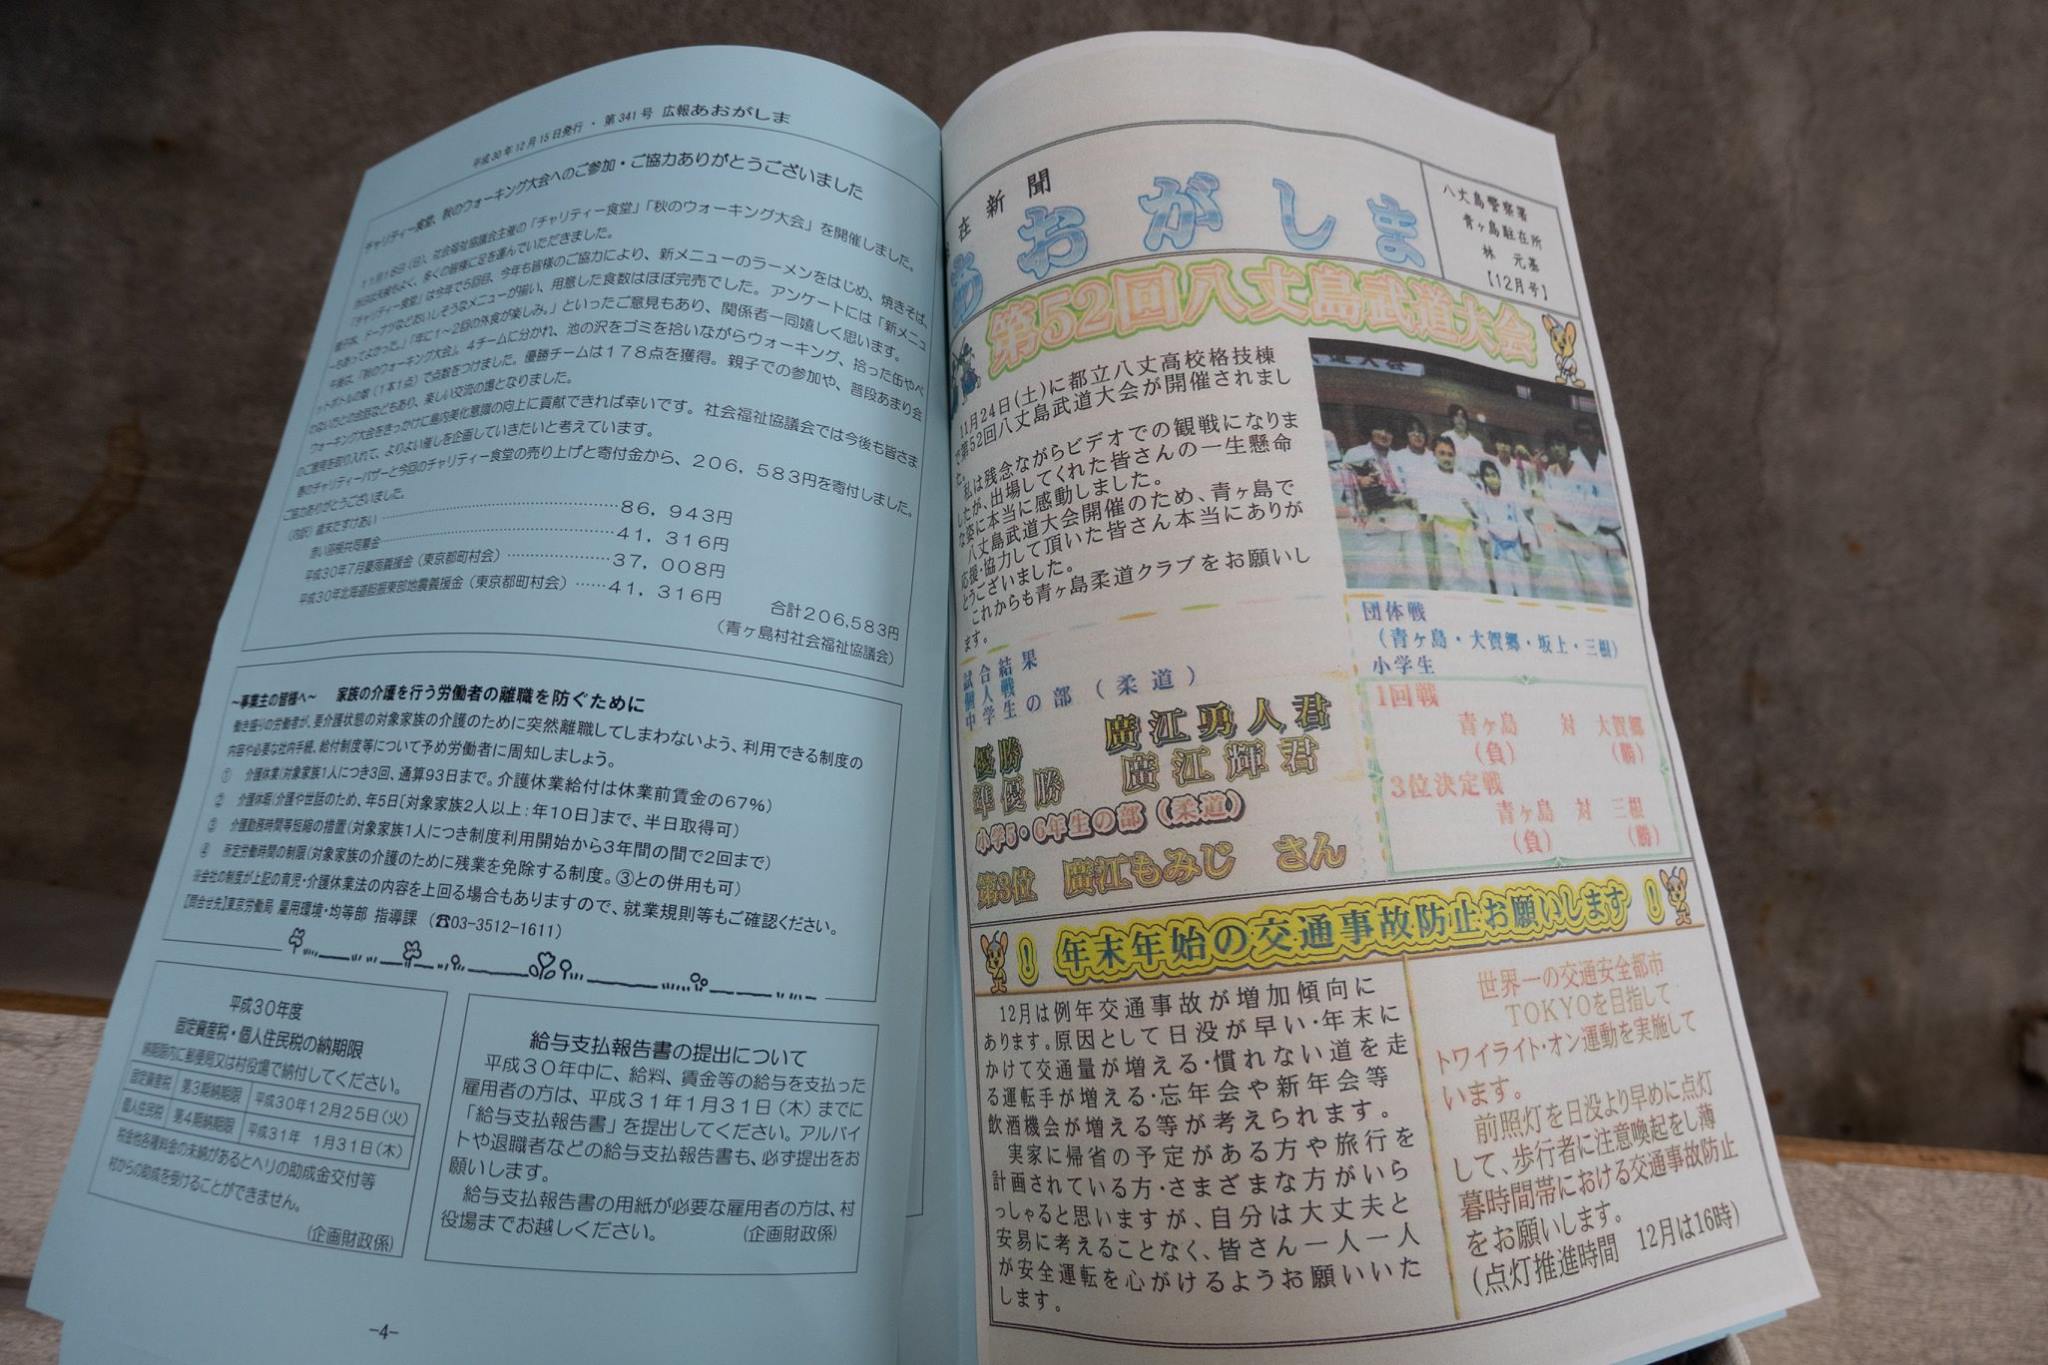 平成30年12月15日発行・第341号 広報あおがしま
チャリティー食堂、秋のウォーキング大会へのご参加・ご協力ありがとうございました
11月18日(日)、社会福祉協議会主催の「チャリティー食堂」「秋のウォーキング大会」を開催しました。
当日は天候もよく、多くの皆様に足を運んでいただきました。
「チャリティー食堂」は今年で5回目、今年も皆様のご協力により、新メニューのラーメンをはじめ、焼きそば、
餃子、ドーナツなどおいしそうなメニューが揃い、用意した食数はほぼ完売でした。アンケートには「新メニュ
ーもあってよかった。」「年に1～2回の外食が楽しみ。」といったご意見もあり、関係者一同嬉しく思います。
午後は、「秋のウォーキング大会」。4チームに分かれ、池の沢をゴミを拾いながらウォーキング、拾った缶やペ
ットボトルの数(1本1点)で点数をつけました。優勝チームは178点を獲得。親子での参加や、普段あまり会
わない方との会話などもあり、楽しい交流の場となりました。
ウォーキング大会をきっかけに島内美化意識の向上に貢献できれば幸いです。社会福祉協議会では今後も皆さま
のご意見を取り入れて、よりよい催しを企画していきたいと考えています。
春のチャリティーバザーと今回のチャリティー食堂の売り上げと寄付金から、206,583円を寄付しました。
ご協力ありがとうございました。
(内訳) 歳末たすけあい……86,943円
赤い羽根共同募金……41,316円
平成30年7月豪雨義援金(東京都町村会)……37,008円
平成30年北海道胆振東部地震義援金(東京都町村会)……41,316円
合計206,583円
(青ヶ島村社会福祉協議会)
～事業主の皆様へ～ 家族の介護を行う労働者の離職を防ぐために
働き盛りの労働者が、要介護状態の対象家族の介護のために突然離職してしまわないよう、利用できる制度の
内容や必要な社内手続、給付制度等について予め労働者に周知しましょう。
① 介護休業(対象家族1人につき3回、通算93日まで。介護休業給付は休業前賃金の67%)
② 介護休暇(介護や世話のため、年5日[対象家族2人以上:年10日]まで、半日取得可)
③ 介護勤務時間等短縮の措置(対象家族1人につき制度利用開始から3年間の間で2回まで)
④ 所定労働時間の制限(対象家族の介護のために残業を免除する制度。③との併用も可)
※会社の制度が上記の育児・介護休業法の内容を上回る場合もありますので、就業規則等もご確認ください。
【問合せ先】東京労働局 雇用環境・均等部 指導課 (☎03-3512-1611)
平成30年度
固定資産税・個人住民税の納期限
納期限内に郵便局又は村役場で納付してください。
固定資産税 第3期納期限 平成30年12月25日(火)
個人住民税 第4期納期限 平成31年 1月31日(木)
税金他各種料金の未納があるとヘリの助成金交付等
村からの助成を受けることができません。
(企画財政係)
給与支払報告書の提出について
平成30年中に、給料、賃金等の給与を支払った
雇用者の方は、平成31年1月31日(木)までに
「給与支払報告書」を提出してください。アルバイ
トや退職者などの給与支払報告書も、必ず提出をお
願いします。
給与支払報告書の用紙が必要な雇用者の方は、村
役場までお越しください。 (企画財政係)
-4-
在新聞
あおがしま
八丈島警察署
青ヶ島駐在所
林 元基
【12月号】
第52回八丈島武道大会
11月24日(土)に都立八丈高校格技棟
で第52回八丈島武道大会が開催されまし
た。
私は残念ながらビデオでの観戦になりま
したが、出場してくれた皆さんの一生懸命
な姿に本当に感動しました。
八丈島武道大会開催のため、青ヶ島で
応援・協力して頂いた皆さん本当にありが
とうございました。
これからも青ヶ島柔道クラブをお願いし
ます。
試合結果
個人戦
中学生の部(柔道)
優勝 廣江勇人君
準優勝 廣江輝君
小学5・6年生の部(柔道)
第3位 廣江もみじ さん
道大会
団体戦
(青ヶ島・大賀郷・坂上・三根)
小学生
1回戦
青ヶ島 対 大賀郷
(負) (勝)
3位決定戦
青ヶ島 対 三根
(負) (勝)
! 年末年始の交通事故防止お願いします !
12月は例年交通事故が増加傾向に
あります。原因として日没が早い・年末に
かけて交通量が増える・慣れない道を走
る運転手が増える・忘年会や新年会等
飲酒機会が増える等が考えられます。
実家に帰省の予定がある方や旅行を
計画されている方・さまざまな方がいら
っしゃると思いますが、自分は大丈夫と
安易に考えることなく、皆さん一人一人
が安全運転を心がけるようお願いいた
します。
世界一の交通安全都市
TOKYOを目指して
トワイライト・オン運動を実施して
います。
前照灯を日没より早めに点灯
して、歩行者に注意喚起をし薄
暮時間帯における交通事故防止
をお願いします。
(点灯推進時間 12月は16時)